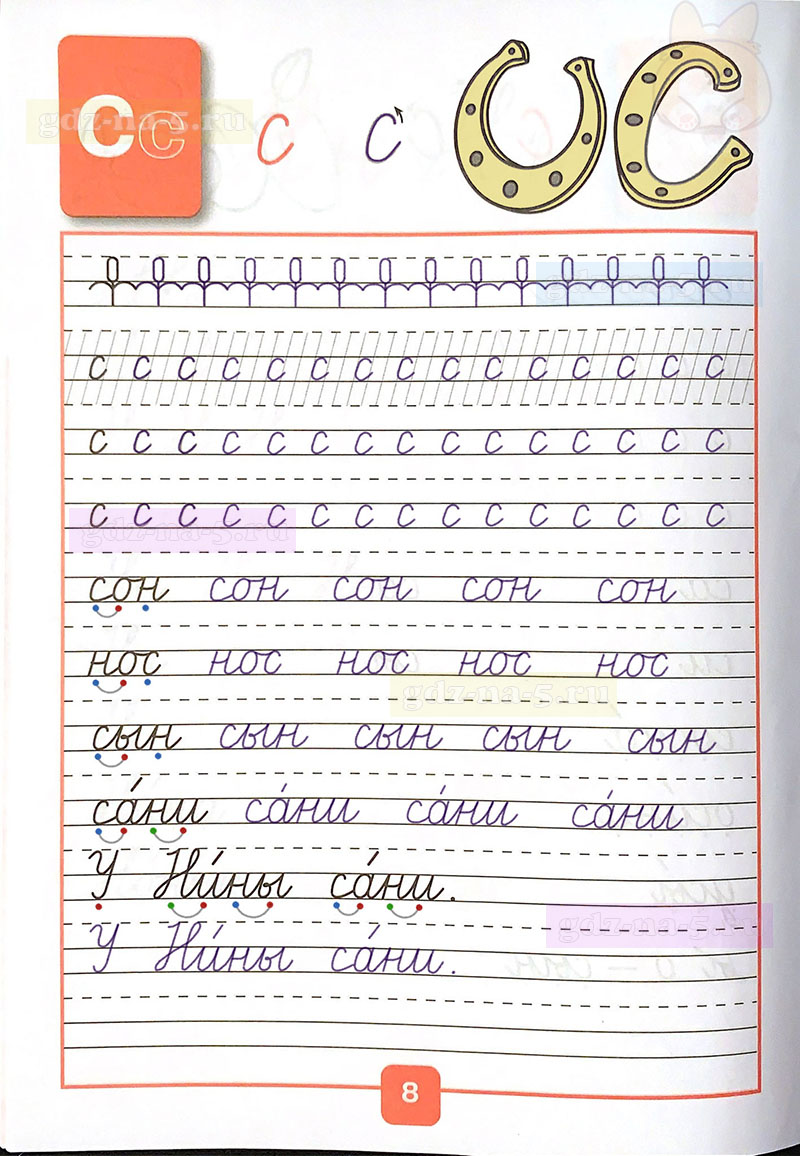 Сс с с
с с с с с с с с с с с с с с с
с с с с с с с с с с с с с с с
с с с с с с с с с с с с с с с
сон сон сон сон сон
нос нос нос нос нос
сын сын сын сын сын
са́ни са́ни са́ни са́ни
У Ни́ны са́ни.
У Ни́ны са́ни.
8
gdz-na-5.ru
gdz-na-5.ru
gdz-na-5.ru
gdz-na-5.ru
gdz-na-5.ru